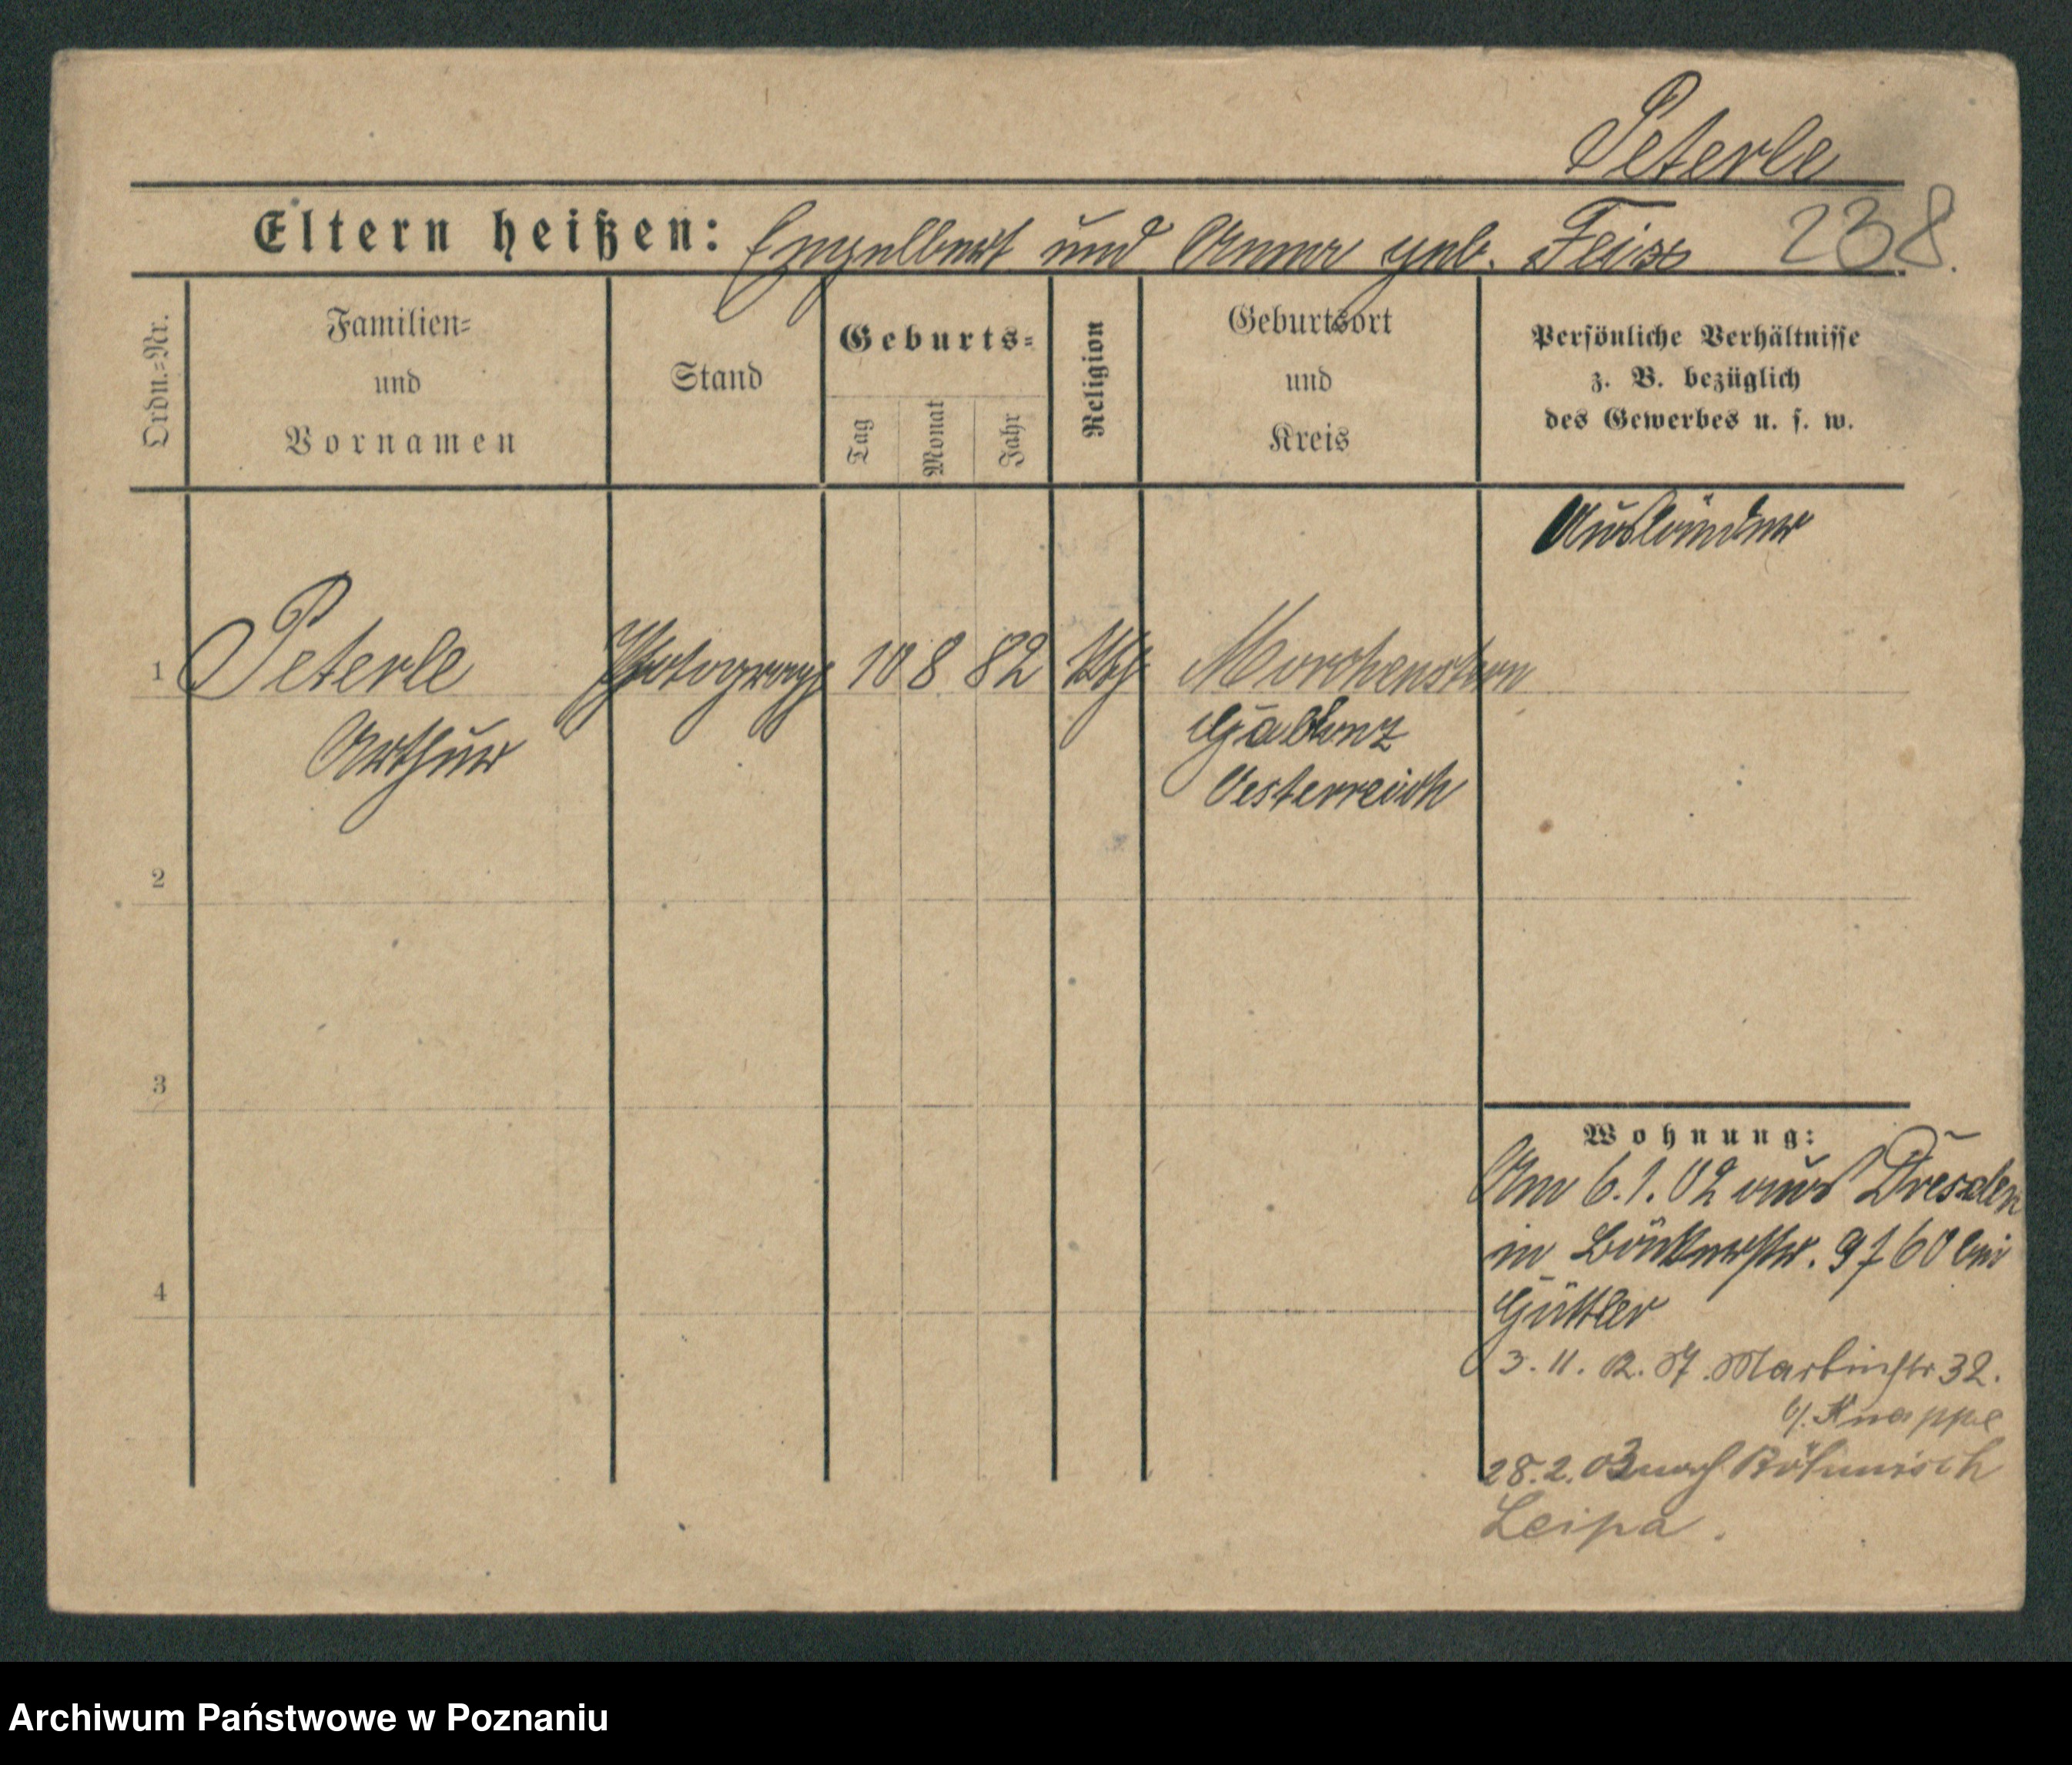 Peterle
Eltern heißen: Engelbert und Anna geb. Feiss 238.
Ordn.-Nr.
Familien-
und
Vornamen
Stand
Geburts-
Tag
Monat
Jahr
Religion
Geburtsort
und
Kreis
Persönliche Verhältnisse
z. B. bezüglich
des Gewerbes u. s. w.
Ausländer
1 Peterle Photograph 10 8 82 Kth Morchenstern
Arthur Gablonz
Oesterreich
2
3
4
Wohnung:
Am 6.1.02 aus Dresden
in Bäckerstr. 9 f 60 bei
Güttler
3. 11. 02. St. Martinstr 32.
b/. Knappe
28.2.03 nach Böhmisch
Leipa.
Archiwum Państwowe w Poznaniu